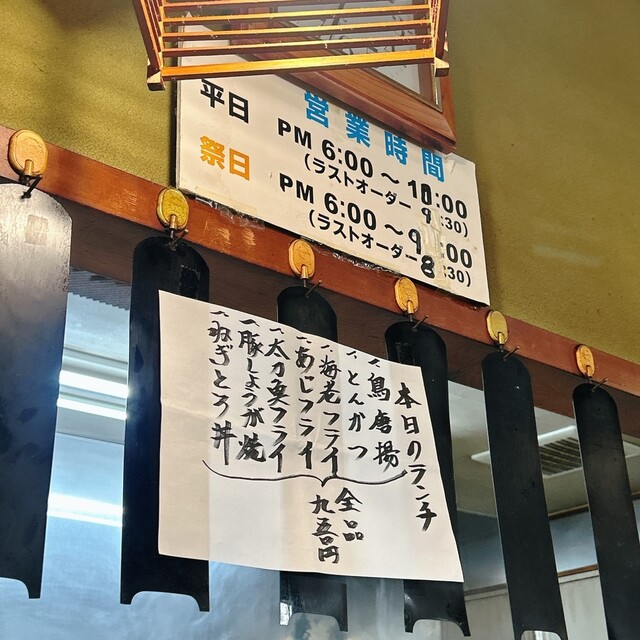 営業時間
平日 PM 6:00～10:00
(ラストオーダー 9:30)
祭日 PM 6:00～9:00
(ラストオーダー 8:30)
本日のランチ
一、鳥唐揚
一、とんかつ
一、海老フライ
一、あじフライ
一、太刀魚フライ
一、豚しょうが焼
一、ねぎとろ丼
全品
九五〇円